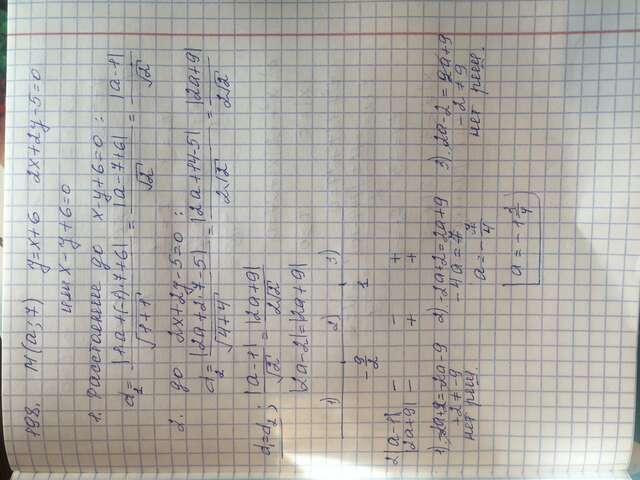 198. M(a;7) y=x+6 2x+2y-5=0
или x-y+6=0
1. Расстояние до x-y+6=0:
d₁= |1·a+(-1)·7+6| / √1+1 = |a-7+6| / √2 = |a-1| / √2
2. до 2x+2y-5=0:
d₂= |2a+2·7-5| / √4+4 = |2a+14-5| / 2√2 = |2a+9| / 2√2
d₁=d₂; |a-1| / √2 = |2a+9| / 2√2
|2a-2|=|2a+9|
1) 2) 3)
-9/2 1
2|a-1| - - +
|2a+9| - + +
1) -2a+2=-2a-9 2) -2a+2=2a+9 3) 2a-2=2a+9
+2≠-9 -4a=7 -2≠9
нет реш. a=-7/4 нет реш.
a=-1 3/4